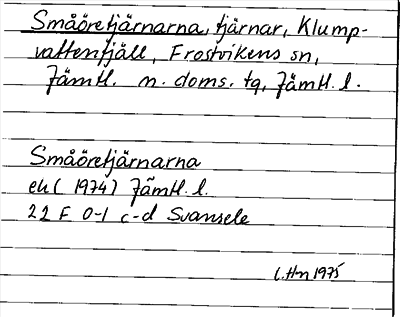 Småöretjärnarna, tjärnar, Klump-
vattenfjäll, Frostvikens sn,
Jämtl. n. doms. tg, Jämtl. l.
Småöretjärnarna
ek (1974) Jämtl. l.
22 F 0-1 c-d Svansele
L.Hn 1975